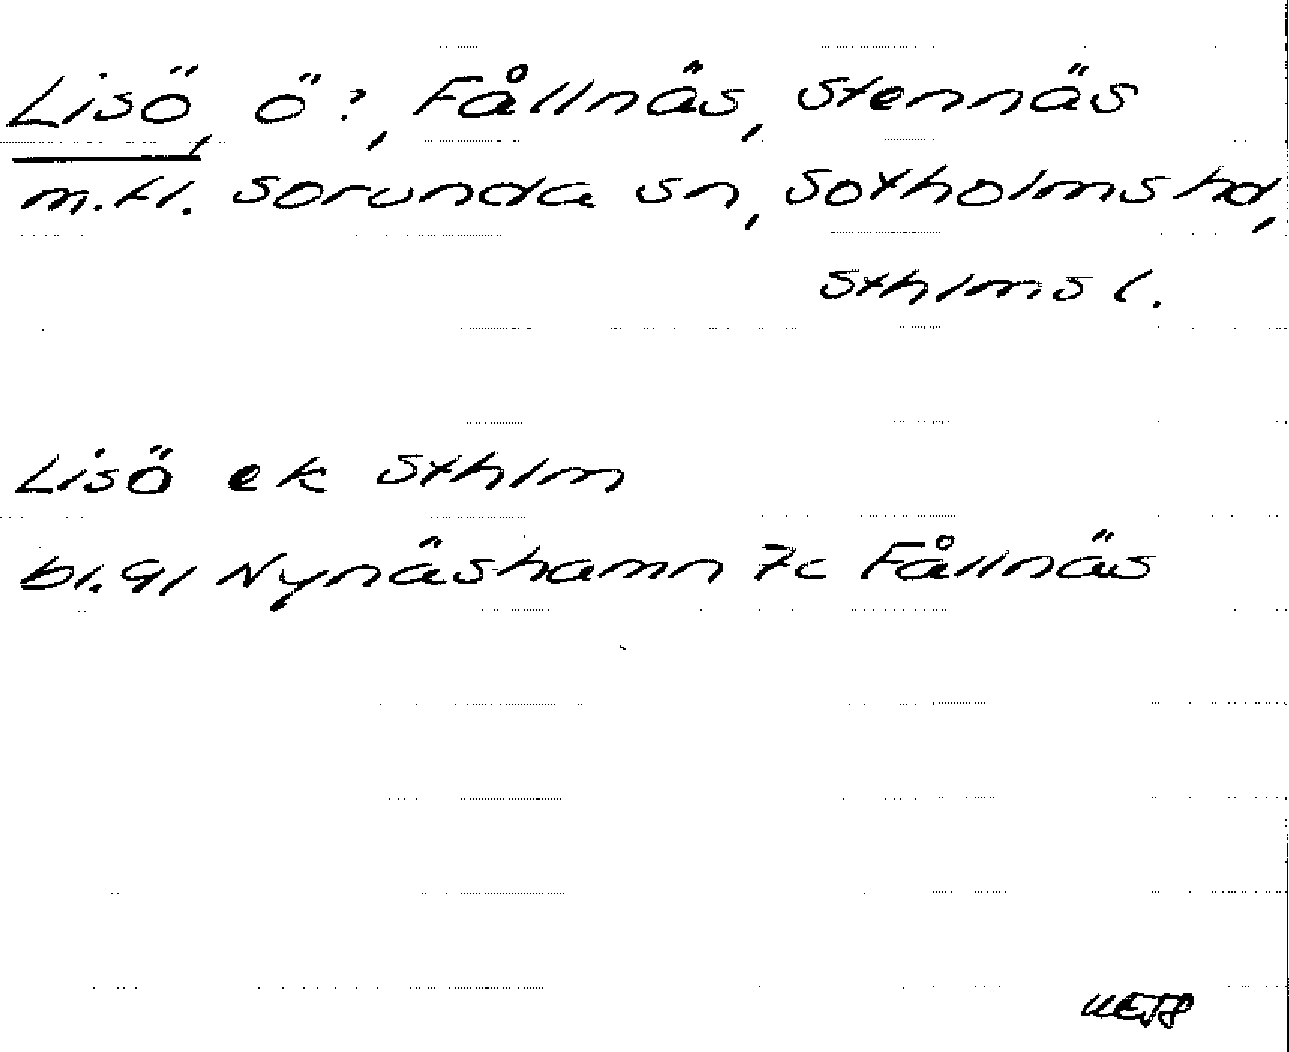 Lisö, ö?, Fållnäs, Stennäs
m.fl. Sorunda sn, Sotholms hd,
Sthlms l.
Lisö ek Sthlm
bl. 91 Nynäshamn 7c Fållnäs